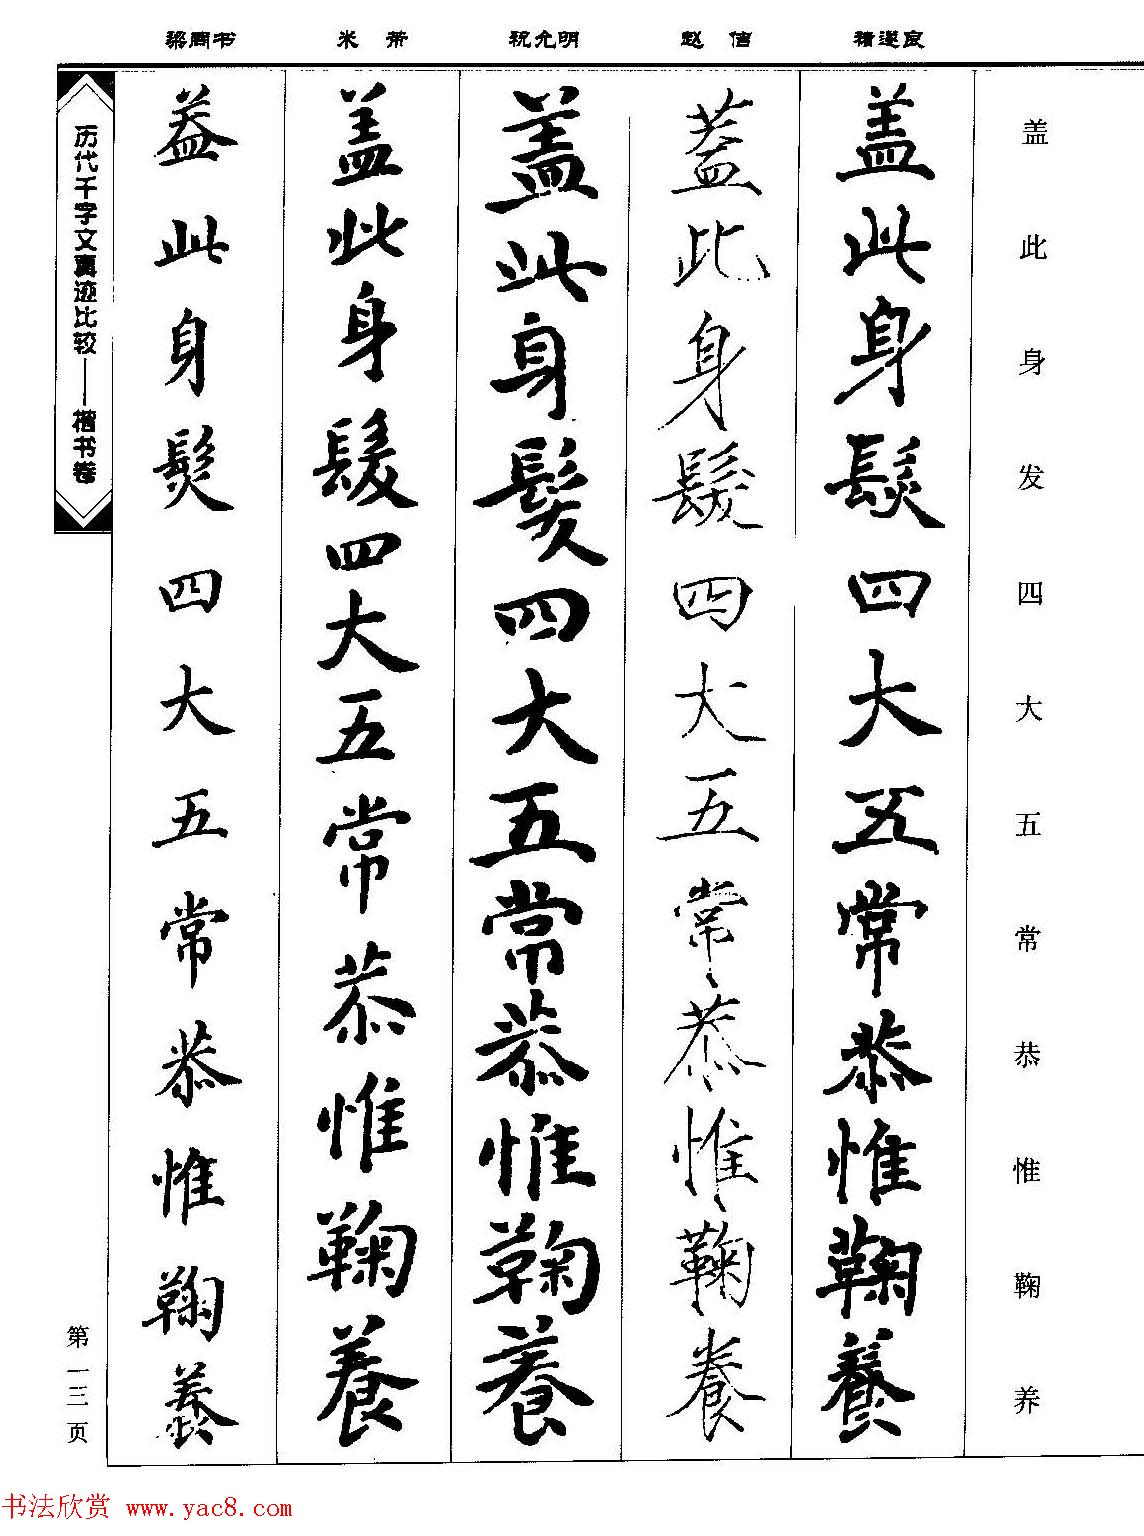 梁同书 米芾 祝允明 赵佶 褚遂良
盖此身发四大五常恭惟鞠养
蓋此身髮四大五常恭惟鞠養
蓋此身髮四大五常恭惟鞠養
蓋此身髮四大五常恭惟鞠養
蓋此身髮四大五常恭惟鞠養
蓋此身髮四大五常恭惟鞠養
历代千字文真迹比较——楷书卷
第一三页
书法欣赏 www.yac8.com